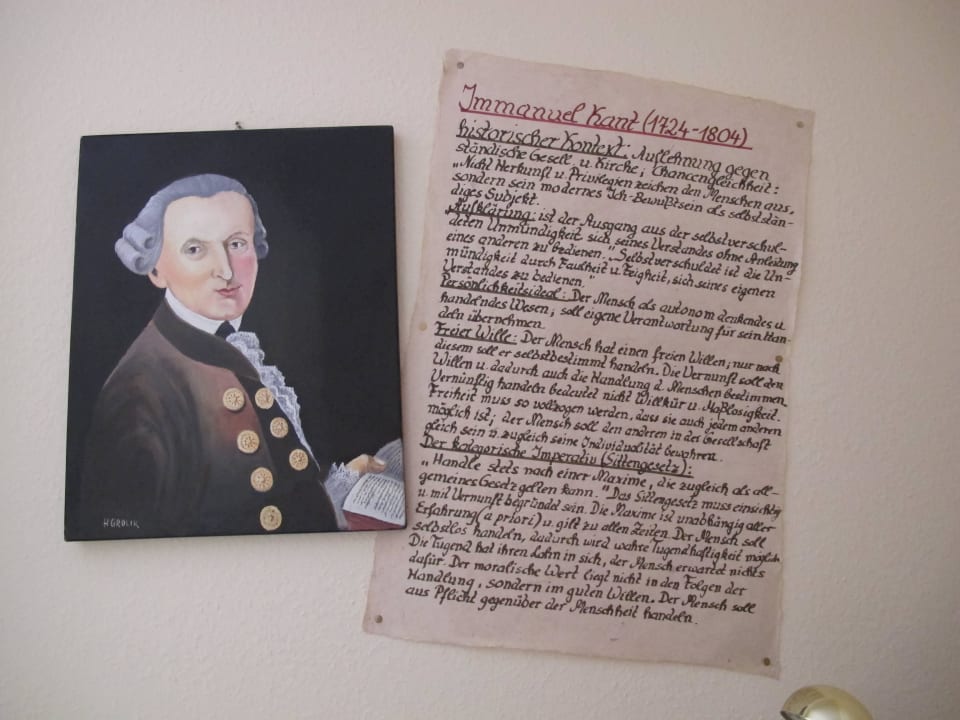 Immanuel Kant (1724-1804)
historischer Kontext: Auflehnung gegen
ständische Gesell. u. Kirche; Chancengleichheit:
"Nicht Herkunft u. Privilegien zeichen den Menschen aus,
sondern sein modernes Ich-Bewußtsein als selbststän-
diges Subjekt.
Aufklärung: ist der Ausgang aus der selbstverschul-
deten Unmündigkeit sich seines Verstandes ohne Anleitung
eines anderen zu bedienen. "Selbstverschuldet ist die Un-
mündigkeit durch Faulheit u. Feigheit, sich seines eigenen
Verstandes zu bedienen."
Persönlichkeitsideal: Der Mensch als autonom denkendes u.
handelndes Wesen; soll eigene Verantwortung für sein Han-
deln übernehmen.
Freier Wille: Der Mensch hat einen freien Willen; nur nach
diesem soll er selbstbestimmt handeln. Die Vernunft soll den
Willen u. dadurch auch die Handlung d. Menschen bestimmen.
Vernünftig handeln bedeutet nicht Willkür u. Maßlosigkeit.
Freiheit muss so vollzogen werden, dass sie auch jedem anderen
möglich ist; der Mensch soll den anderen in der Gesellschaft
gleich sein u. zugleich seine Individualität bewahren.
Der kategorische Imperativ (Sittengesetz):
"Handle stets nach einer Maxime, die zugleich als all-
gemeines Gesetz gelten kann." Das Sittengesetz muss einsichtig
u. mit Vernunft begründet sein. Die Maxime ist unabhängig aller
Erfahrung (a priori) u. gilt zu allen Zeiten. Der Mensch soll
selbstlos handeln, dadurch wird wahre Tugendhaftigkeit möglich.
Die Tugend hat ihren Lohn in sich, der Mensch erwartet nichts
dafür. Der moralische Wert liegt nicht in den Folgen der
Handlung, sondern im guten Willen. Der Mensch soll
aus Pflicht gegenüber der Menschheit handeln.
H GROLIK